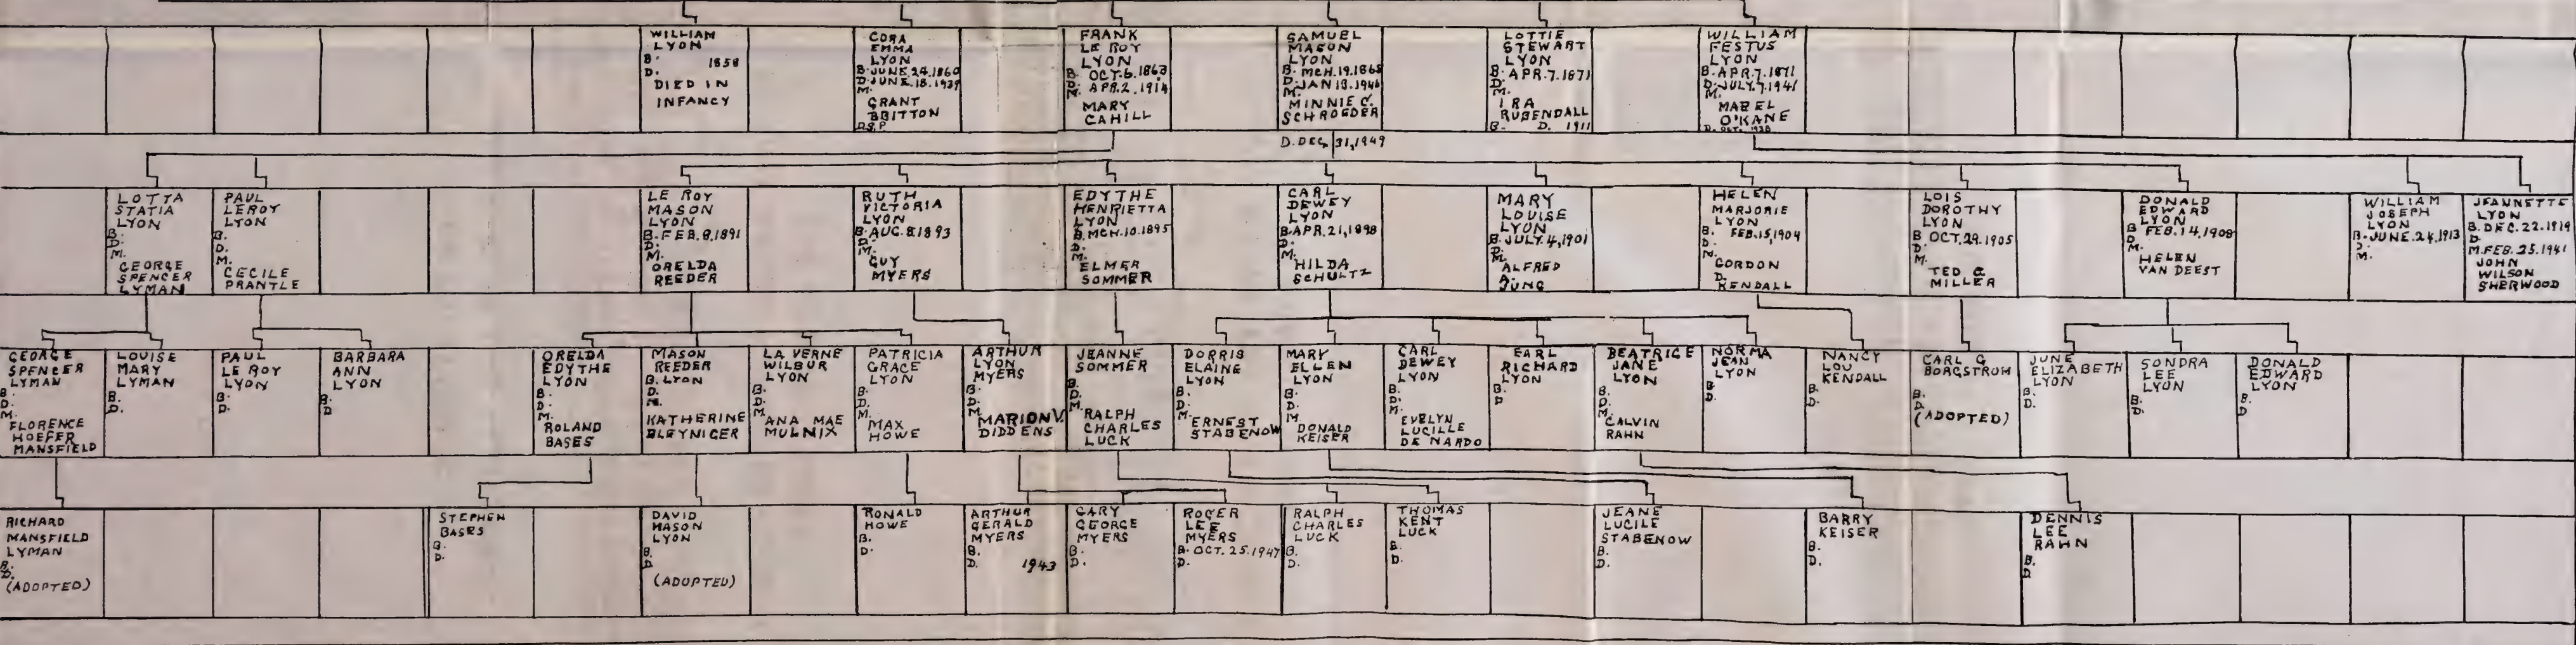 WILLIAM
LYON
B. 1858
D.
DIED IN
INFANCY
CORA
EMMA
LYON
B. JUNE.24.1860
D. JUNE.18.1939
M.
GRANT
BRITTON
D.S.P.
FRANK
LE ROY
LYON
B. OCT.6.1863
D. APR.2.1914
M.
MARY
CAHILL
SAMUEL
MASON
LYON
B. MCH.19.1868
D. JAN.13.1946
M.
MINNIE C.
SCHROEDER
D. DEC. 31,1949
LOTTIE
STEWART
LYON
B. APR.7.1871
D.
M.
IRA
RUBENDALL
B. D. 1911
WILLIAM
FESTUS
LYON
B. APR.7.1871
D. JULY.7.1941
M.
MABEL
O'KANE
D. OCT. 1938
LOTTA
STATIA
LYON
B.
D.
M.
GEORGE
SPENCER
LYMAN
PAUL
LEROY
LYON
B.
D.
M.
CECILE
PRANTLE
LE ROY
MASON
LYON
B. FEB.8.1891
D.
M.
ORELDA
REEDER
RUTH
VICTORIA
LYON
B. AUG.8.1893
D.
M.
GUY
MYERS
EDYTHE
HENRIETTA
LYON
B. MCH.10.1895
D.
M.
ELMER
SOMMER
CARL
DEWEY
LYON
B. APR.21,1898
D.
M.
HILDA
SCHULTZ
MARY
LOUISE
LYON
B. JULY.4,1901
D.
M.
ALFRED
A.
JUNG
HELEN
MARJORIE
LYON
B. FEB.15,1904
D.
M.
GORDON
D.
KENDALL
LOIS
DOROTHY
LYON
B OCT.29.1905
D.
M.
TED G
MILLER
DONALD
EDWARD
LYON
B FEB.14,1908
D
M.
HELEN
VAN DEEST
WILLIAM
JOSEPH
LYON
B. JUNE.24,1913
D.
M.
JEANNETTE
LYON
B. DEC.22.1919
D.
M. FEB.25.1941
JOHN
WILSON
SHERWOOD
GEORGE
SPENCER
LYMAN
B.
D.
M.
FLORENCE
HOEFER
MANSFIELD
LOUISE
MARY
LYMAN
B.
D.
PAUL
LE ROY
LYON
B.
D.
BARBARA
ANN
LYON
B.
D
ORELDA
EDYTHE
LYON
B.
D.
M.
ROLAND
BASES
MASON
REEDER
B. LYON
D.
M.
KATHERINE
BLEYNIGER
LA VERNE
WILBUR
LYON
B.
D.
M.
ANA MAE
MULNIX
PATRICIA
GRACE
LYON
B.
D.
M.
MAX
HOWE
ARTHUR
LYON
MYERS
B.
D.
M.
MARION V.
DIDDENS
JEANNE
SOMMER
B.
D.
M.
RALPH
CHARLES
LUCK
DORRIS
ELAINE
LYON
B.
D.
M.
ERNEST
STABENOW
MARY
ELLEN
LYON
B.
D.
M.
DONALD
KEISER
CARL
DEWEY
LYON
B.
D.
M.
EVELYN
LUCILLE
DE NARDO
EARL
RICHARD
LYON
B.
D
BEATRICE
JANE
LYON
B.
D.
M.
CALVIN
RAHN
NORMA
JEAN
LYON
B.
D.
NANCY
LOU
KENDALL
B.
D.
CARL G
BORGSTROM
B.
D.
(ADOPTED)
JUNE
ELIZABETH
LYON
B.
D.
SONDRA
LEE
LYON
B.
D.
DONALD
EDWARD
LYON
B.
D
RICHARD
MANSFIELD
LYMAN
B.
D.
(ADOPTED)
STEPHEN
BASES
B.
D.
DAVID
MASON
LYON
B.
D
(ADOPTED)
RONALD
HOWE
B.
D.
ARTHUR
GERALD
MYERS
B.
D. 1943
GARY
GEORGE
MYERS
B.
D.
ROGER
LEE
MYERS
B. OCT.25.1947
D.
RALPH
CHARLES
LUCK
B.
D.
THOMAS
KENT
LUCK
B.
D.
JEANE
LUCILE
STABENOW
B.
D.
BARRY
KEISER
B.
D.
DENNIS
LEE
RAHN
B.
D